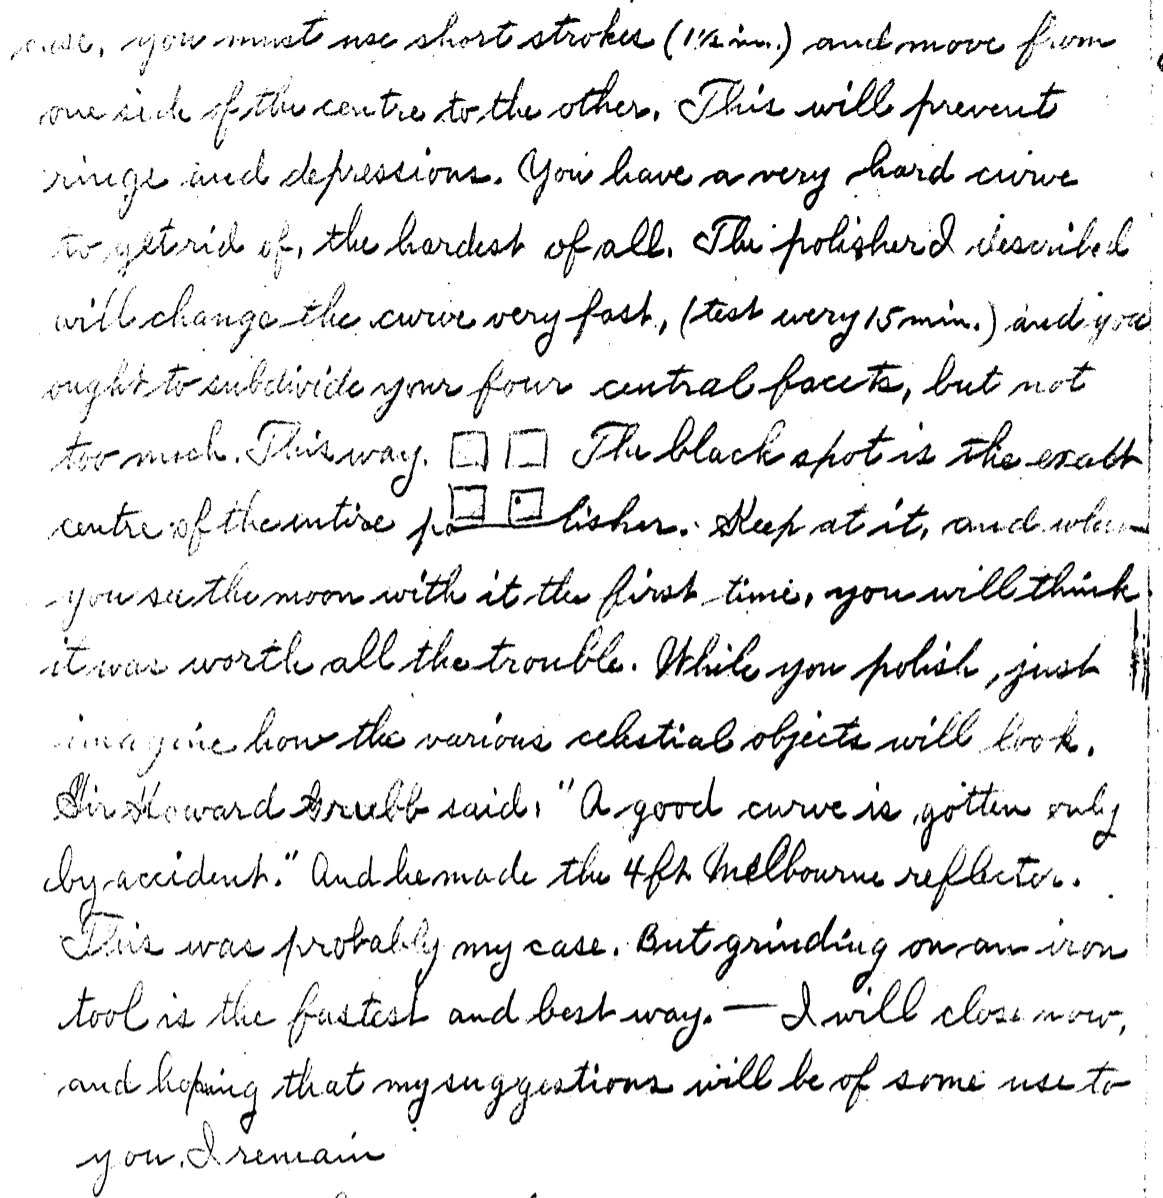 case, you must use short strokes (1½ in.) and move from
one side of the centre to the other. This will prevent
rings and depressions. You have a very hard curve
to get rid of, the hardest of all. The polisher I described
will change the curve very fast, (test every 15 min.) and you
ought to subdivide your four central facets, but not
too much. This way. The black spot is the exact
centre of the entire polisher. Keep at it, and when
you see the moon with it the first time, you will think
it was worth all the trouble. While you polish, just
imagine how the various celestial objects will look.
Sir Howard Grubb said: "A good curve is gotten only
by accident." And he made the 4 ft Melbourne reflector.
This was probably my case. But grinding on an iron
tool is the fastest and best way. — I will close now,
and hoping that my suggestions will be of some use to
you, I remain